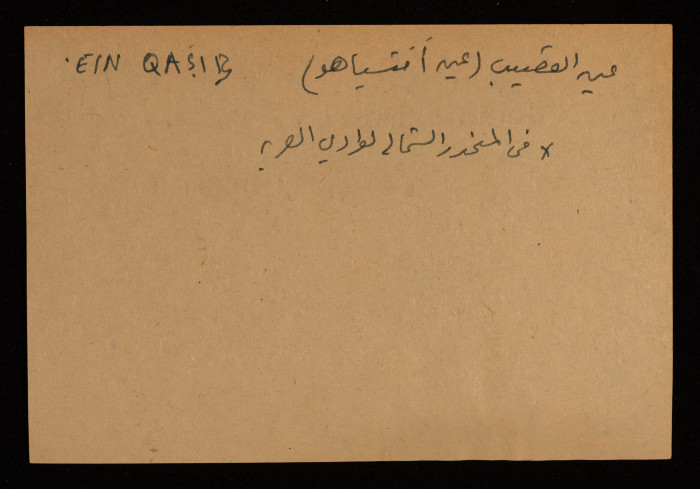 عين القصيب (عين أفتسياهو) 'EIN QAṢIB
× في المنحدر الشمالي لوادي العربه